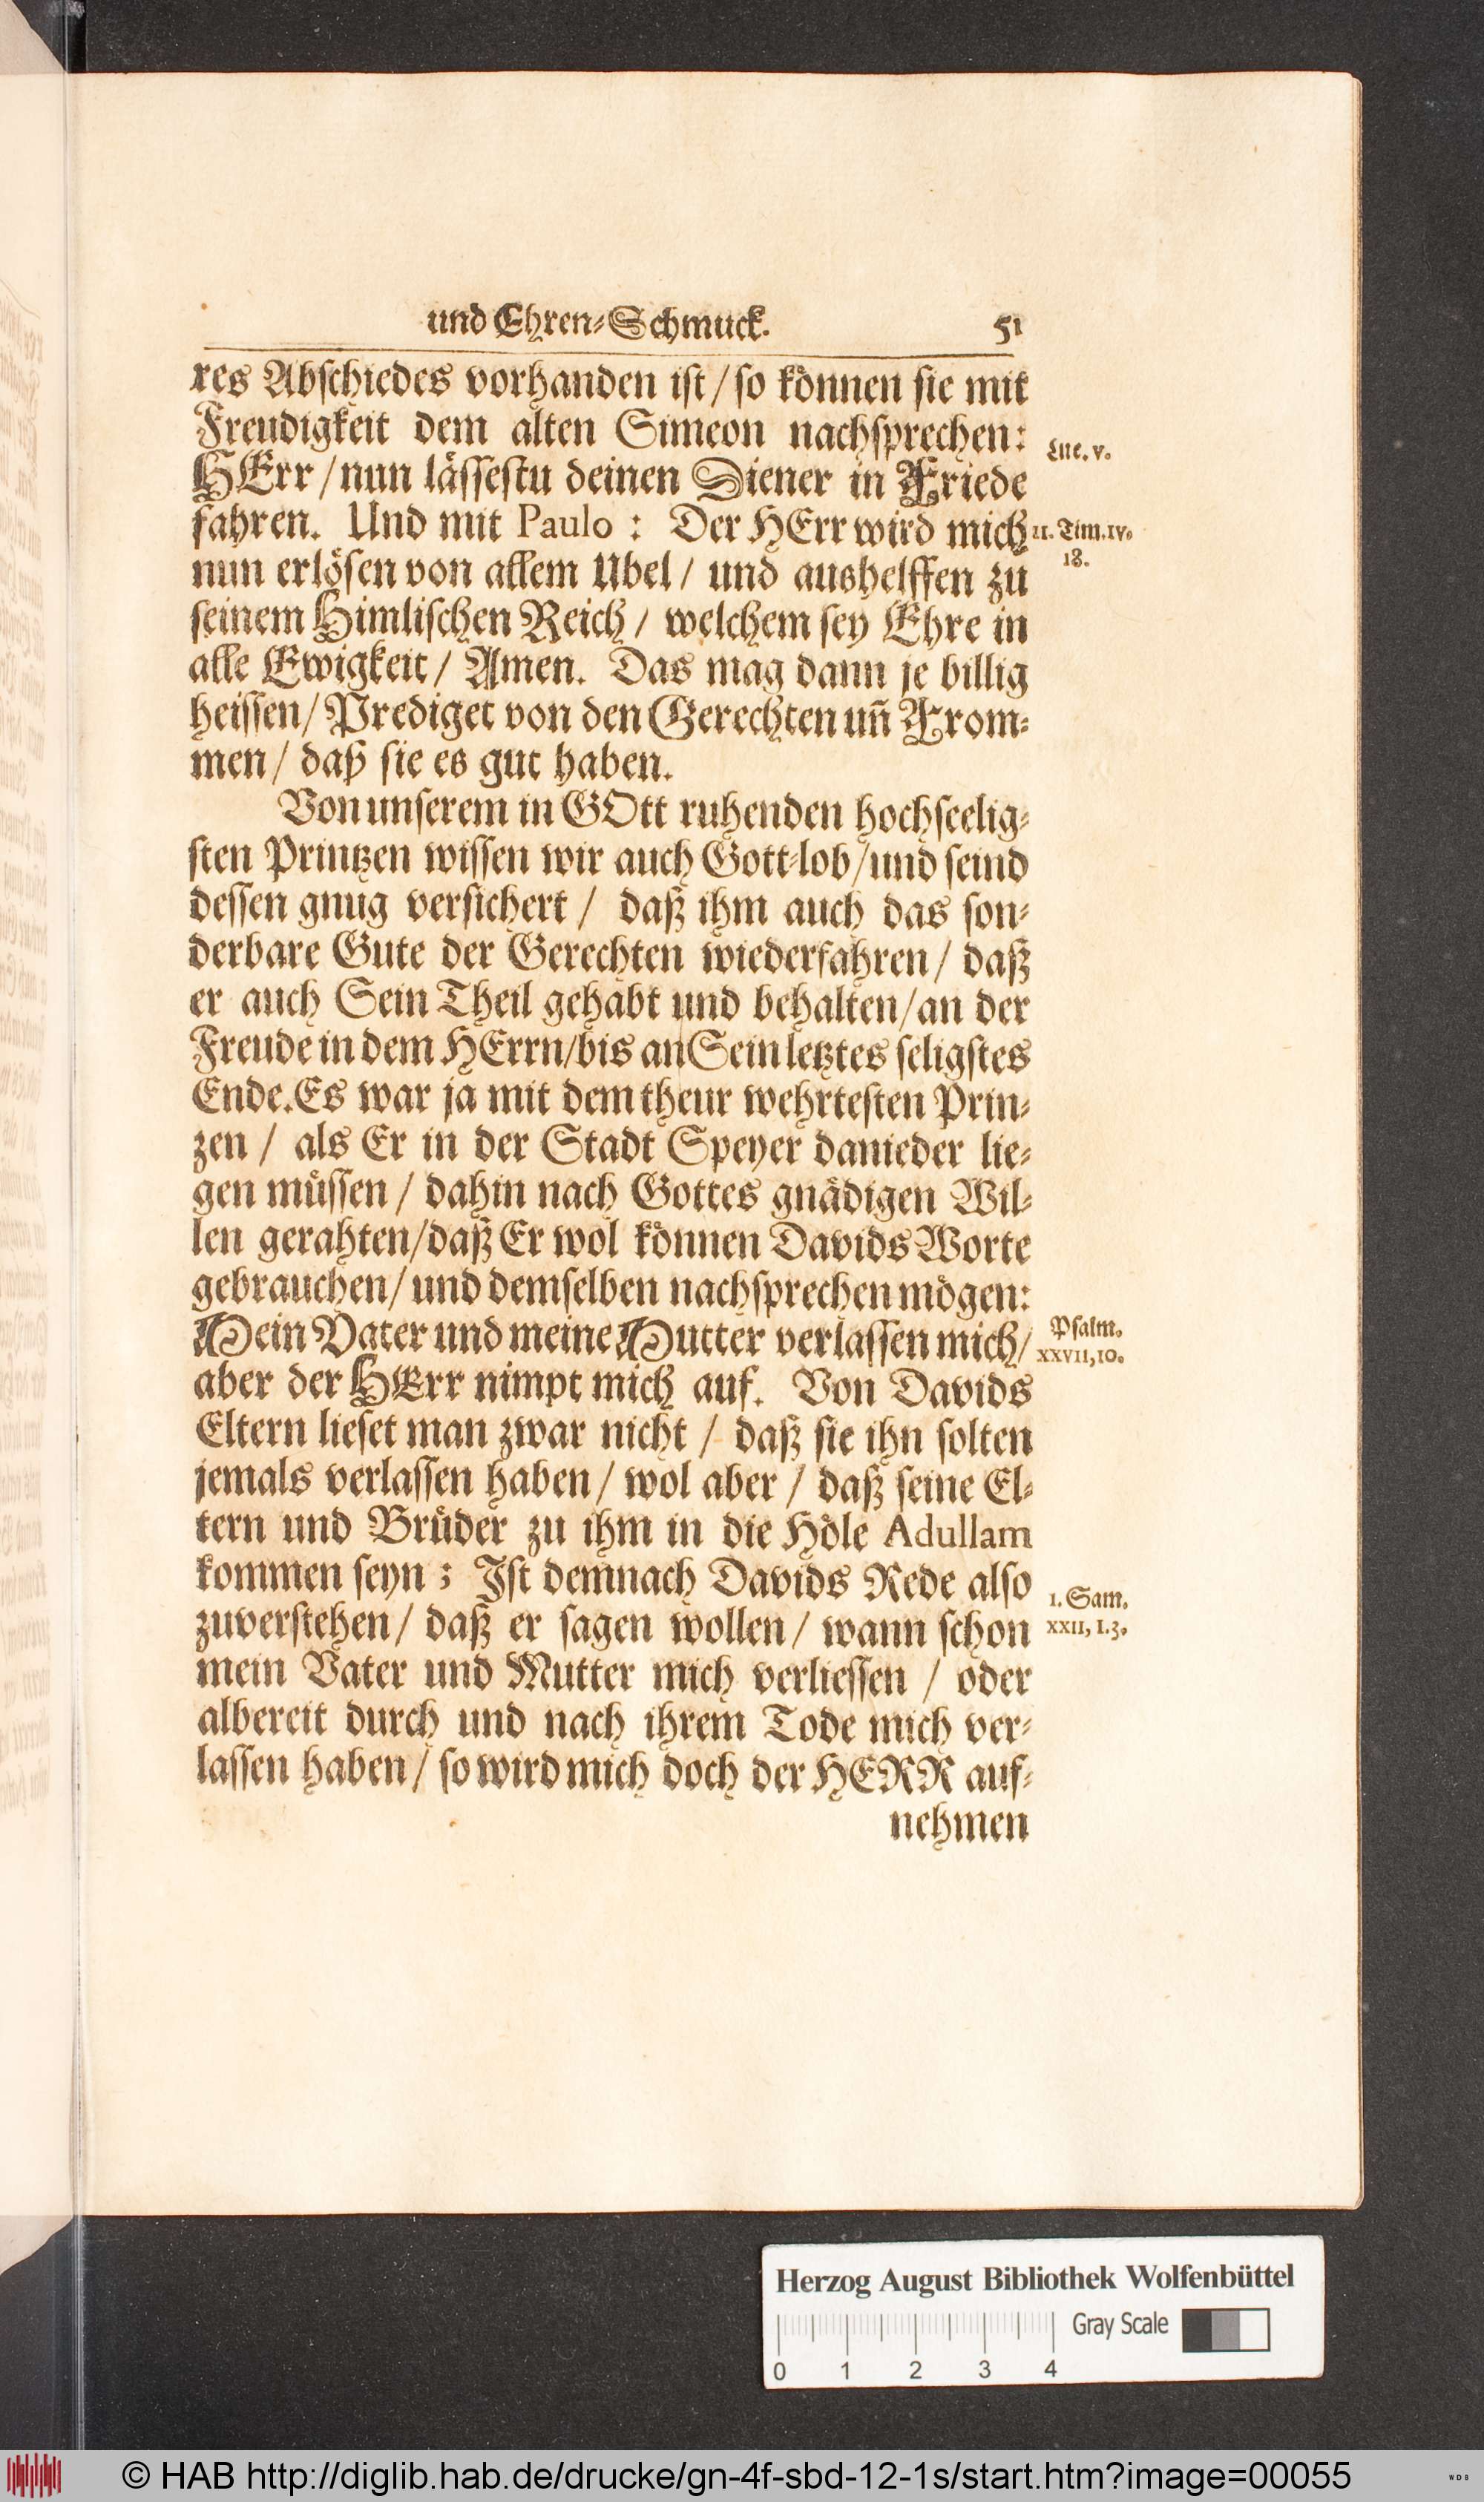 und Ehren⸗Schmuck. 51
res Abschiedes vorhanden ist / so können sie mit
Freudigkeit dem alten Simeon nachsprechen:
Luc. v.
HErr / nun lässestu deinen Diener in Friede
fahren. Und mit Paulo : Der HErr wird mich
II. Tim. IV.
18.
nun erlösen von allem Ubel / und aushelffen zu
seinem Himlischen Reich / welchem sey Ehre in
alle Ewigkeit / Amen. Das mag dann je billig
heissen / Prediget von den Gerechten uñ From⸗
men / daß sie es gut haben.
Von unserem in GOtt ruhenden hochseelig⸗
sten Printzen wissen wir auch Gott⸗lob / und seind
dessen gnug versichert / daß ihm auch das son⸗
derbare Gute der Gerechten wiederfahren / daß
er auch Sein Theil gehabt und behalten / an der
Freude in dem HErrn / bis an Sein letztes seligstes
Ende. Es war ja mit dem theur wehrtesten Prin⸗
zen / als Er in der Stadt Speyer danieder lie⸗
gen müssen / dahin nach Gottes gnädigen Wil⸗
len gerahten / daß Er wol können Davids Worte
gebrauchen / und demselben nachsprechen mögen:
Mein Vater und meine Mutter verlassen mich /
Psalm.
XXVII, 10.
aber der HErr nimpt mich auf. Von Davids
Eltern lieset man zwar nicht / daß sie ihn solten
jemals verlassen haben / wol aber / daß seine El⸗
tern und Brüder zu ihm in die Höle Adullam
kommen seyn ; Ist demnach Davids Rede also
I. Sam.
XXII, 1.3.
zuverstehen / daß er sagen wollen / wann schon
mein Vater und Mutter mich verliessen / oder
albereit durch und nach ihrem Tode mich ver⸗
lassen haben / so wird mich doch der HERR auf⸗
nehmen
Herzog August Bibliothek Wolfenbüttel
Gray Scale
0 1 2 3 4
© HAB http://diglib.hab.de/drucke/gn-4f-sbd-12-1s/start.htm?image=00055
WDB